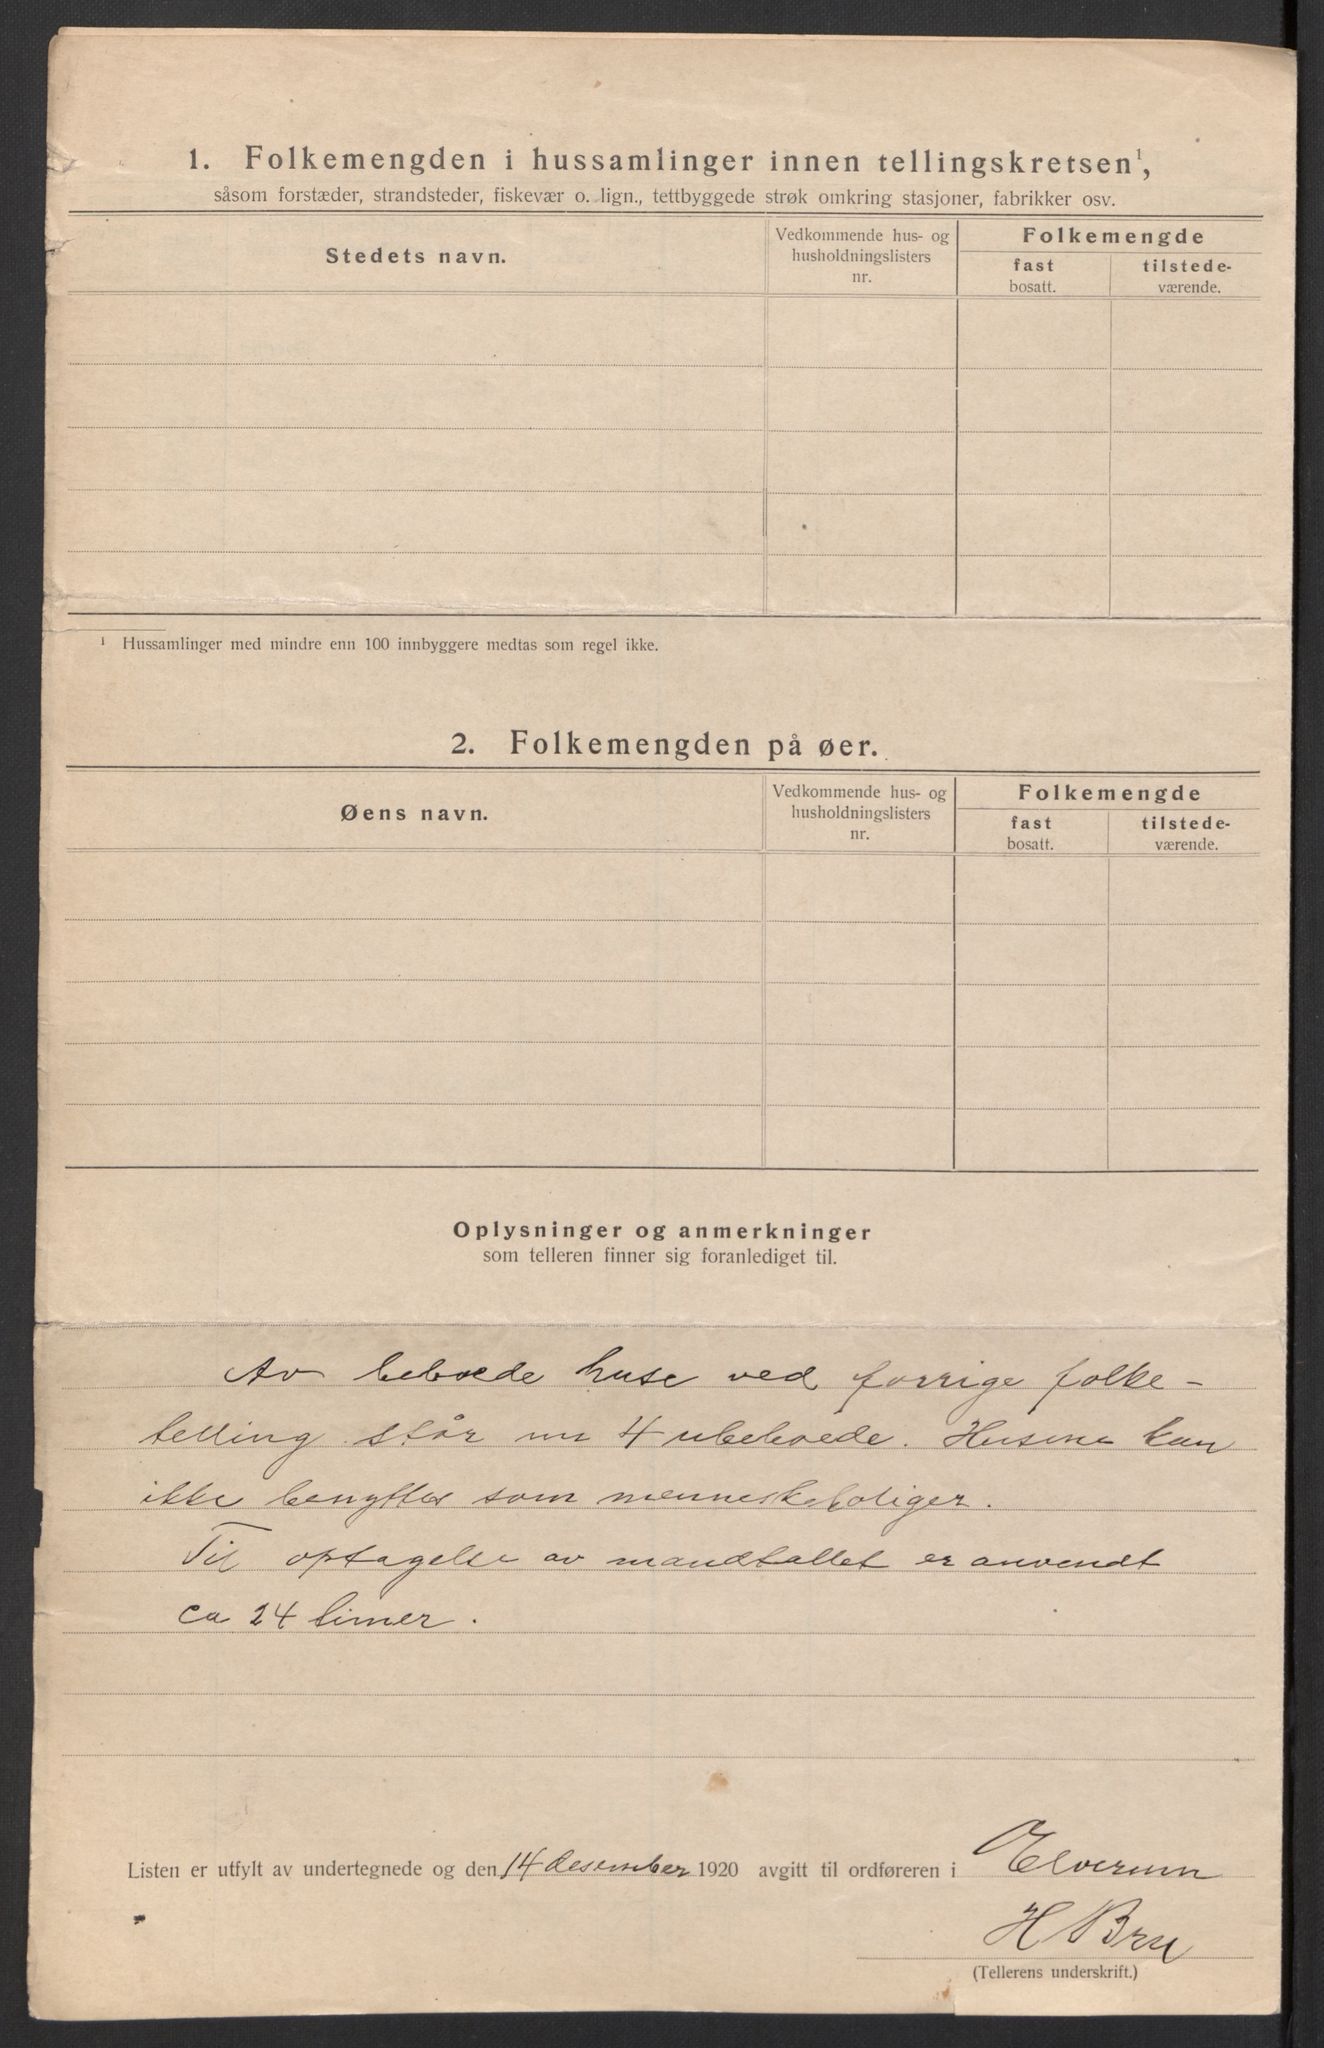 1. Folkemengden i hussamlinger innen tellingskretsen¹,
såsom forstæder, strandsteder, fiskevær o. lign., tettbyggede strøk omkring stasjoner, fabrikker osv.
Stedets navn.
Vedkommende hus- og
husholdningslisters
nr.
Folkemengde
fast
bosatt.
tilstede-
værende.
¹ Hussamlinger med mindre enn 100 innbyggere medtas som regel ikke.
2. Folkemengden på øer.
Øens navn.
Vedkommende hus- og
husholdningslisters
nr.
Folkemengde
fast
bosatt.
tilstede-
værende.
Oplysninger og anmerkninger
som telleren finner sig foranlediget til.
Av beboede huse ved forrige folke-
telling står nu 4 ubeboede. Husene kan
ikke benyttes som menneskeboliger.
Til optagelse av mandtallet er anvendt
ca 24 timer.
Listen er utfylt av undertegnede og den 14 desember 1920 avgitt til ordføreren i Elverum
H Bru
(Tellerens underskrift.)